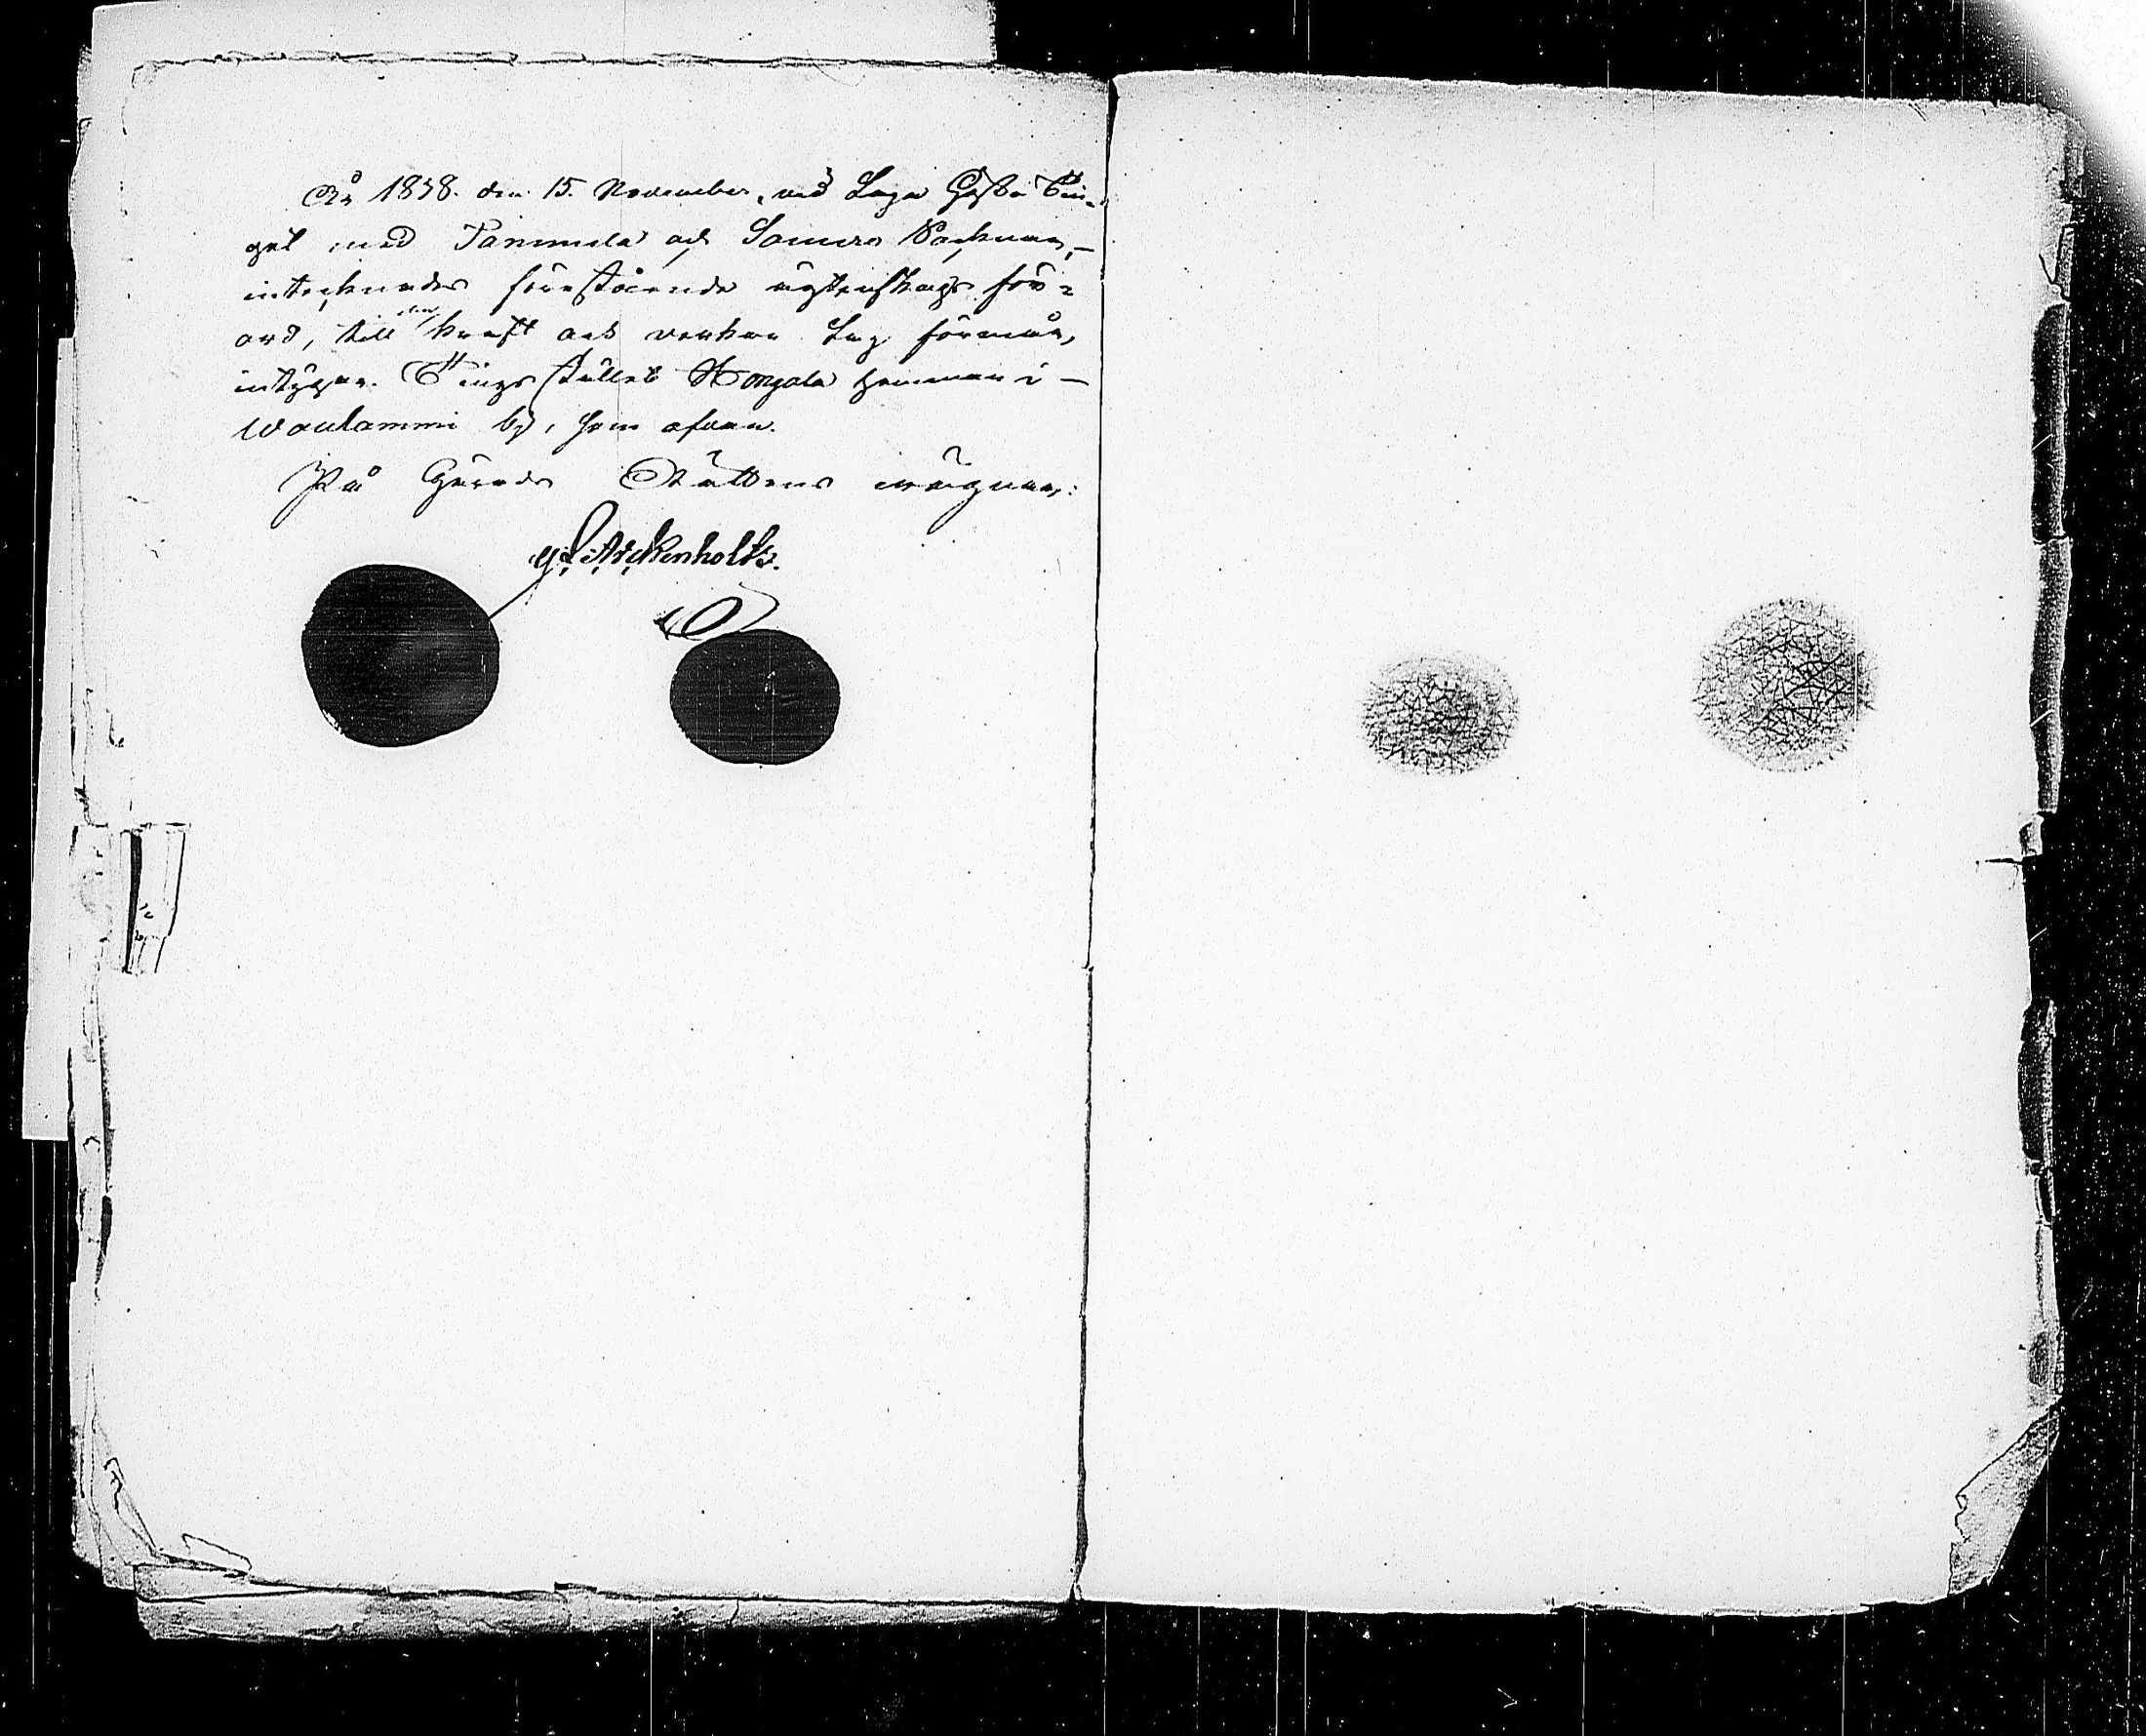 År 1838. den 15. November, vid Laga Höste Tin-
get med Tammela och Somero Soknar,
intecknades förestående ägtenskaps för-
ord, till den kraft och verkan Lag förmår,
intygar. Tingsstället Horgala hemman i
Waulammi by, som ofvan.
På Härads Rättens wägnar:
Arckenholtz.